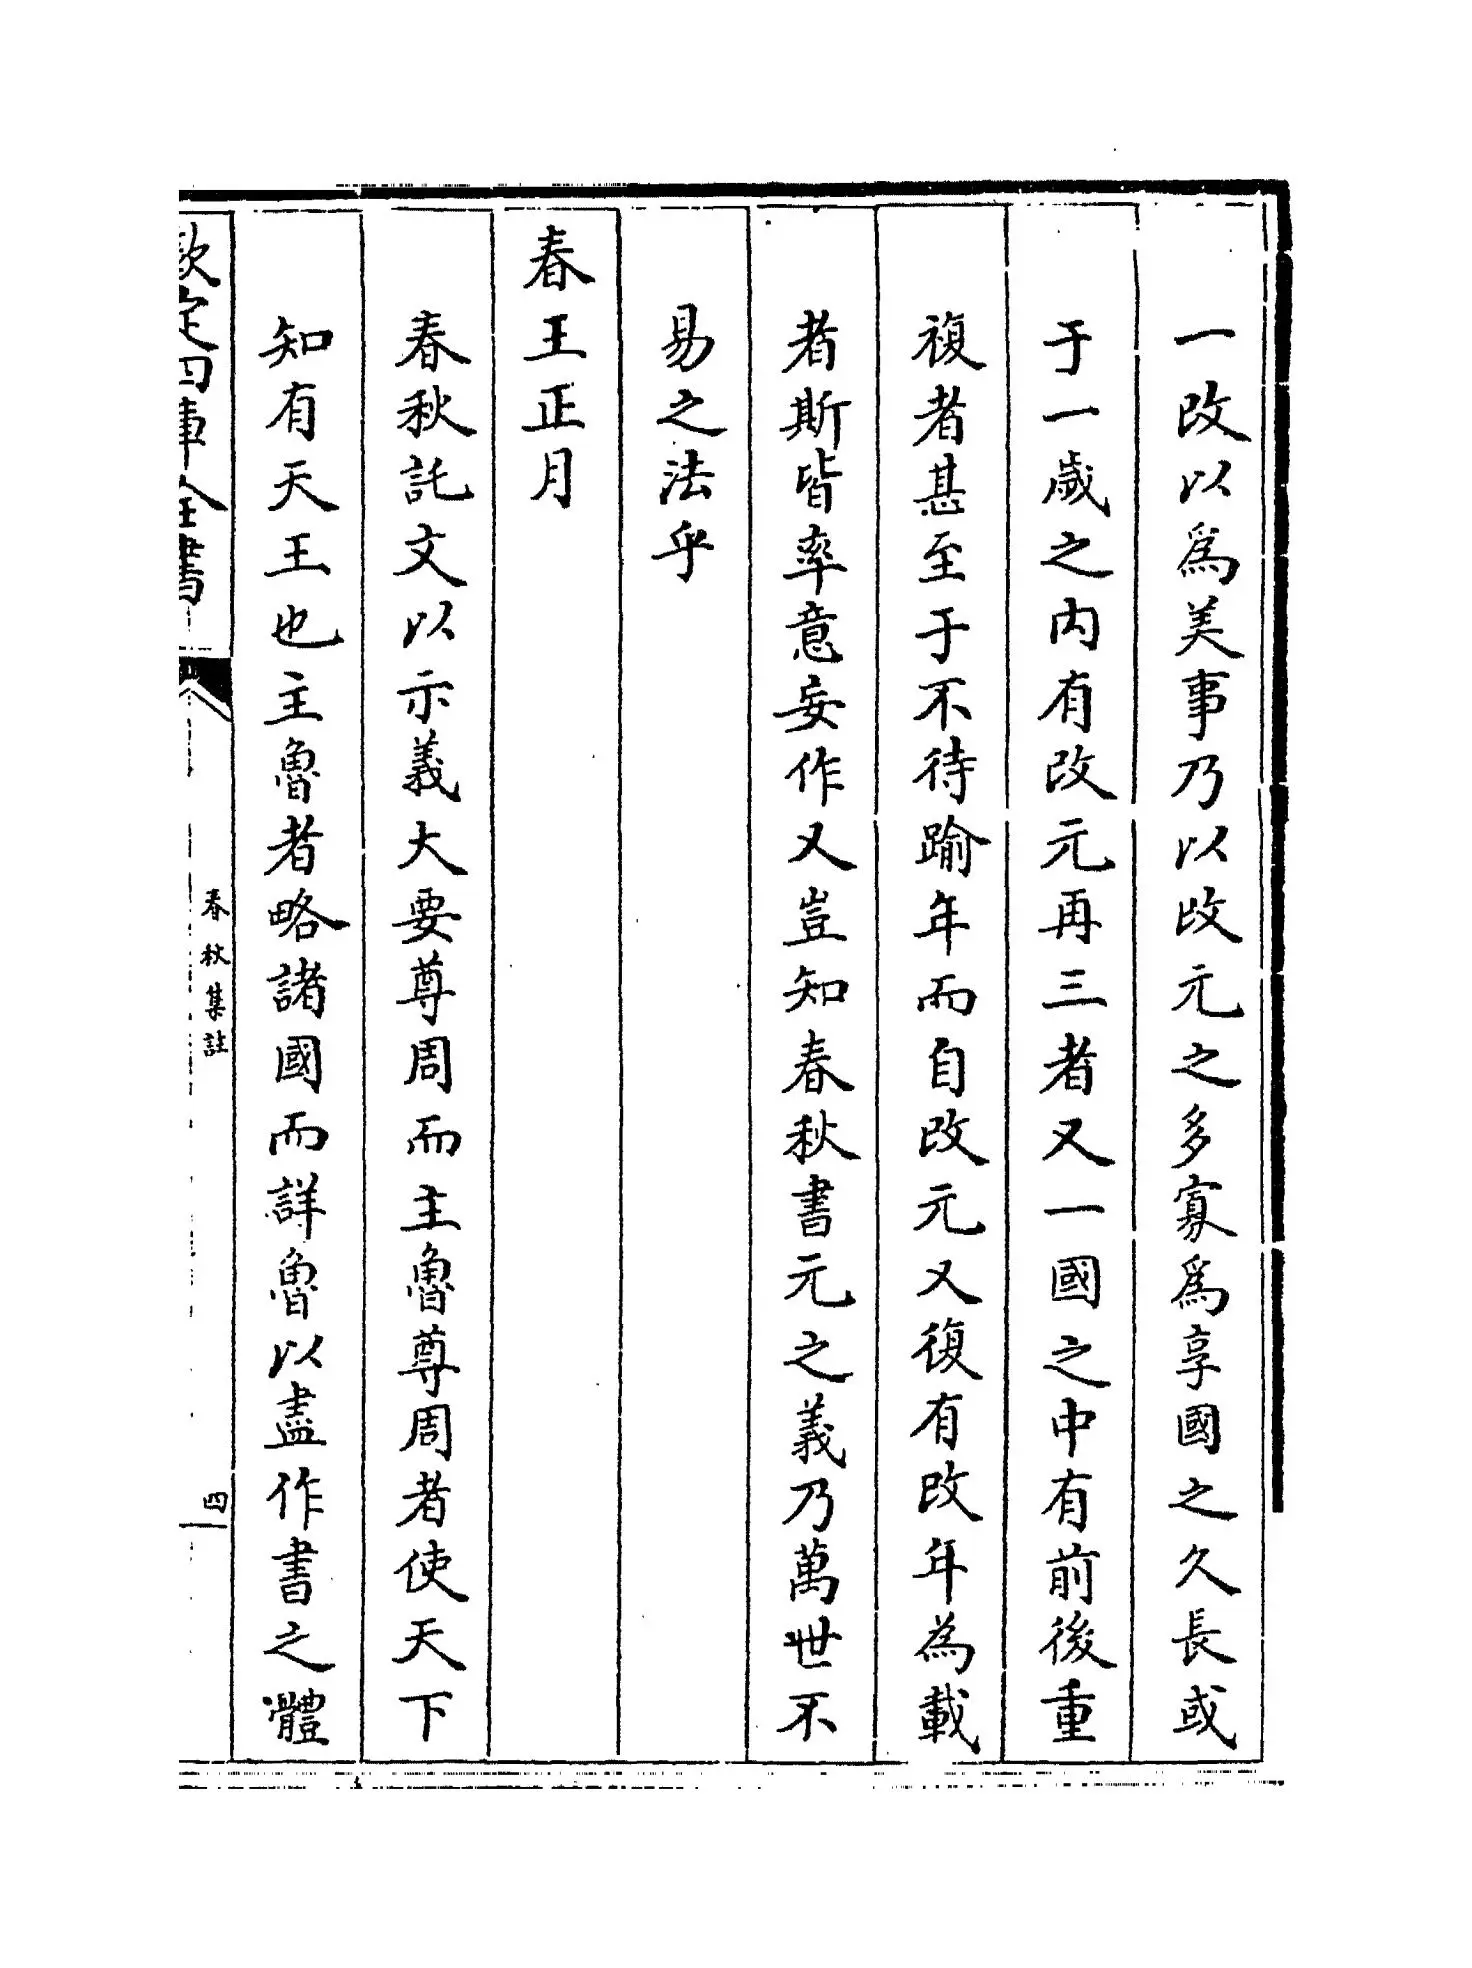 一改以爲美事乃以改元之多寡爲享國之久長或
于一歲之内有改元再三者又一國之中有前後重
複者甚至于不待踰年而自改元又復有改年為載
者斯皆率意妄作又豈知春秋書元之義乃萬世不
易之法乎
春王正月
春秋託文以示義大要尊周而主魯尊周者使天下
知有天王也主魯者略諸國而詳魯以盡作書之體
欽定四庫全書
春秋集註
四